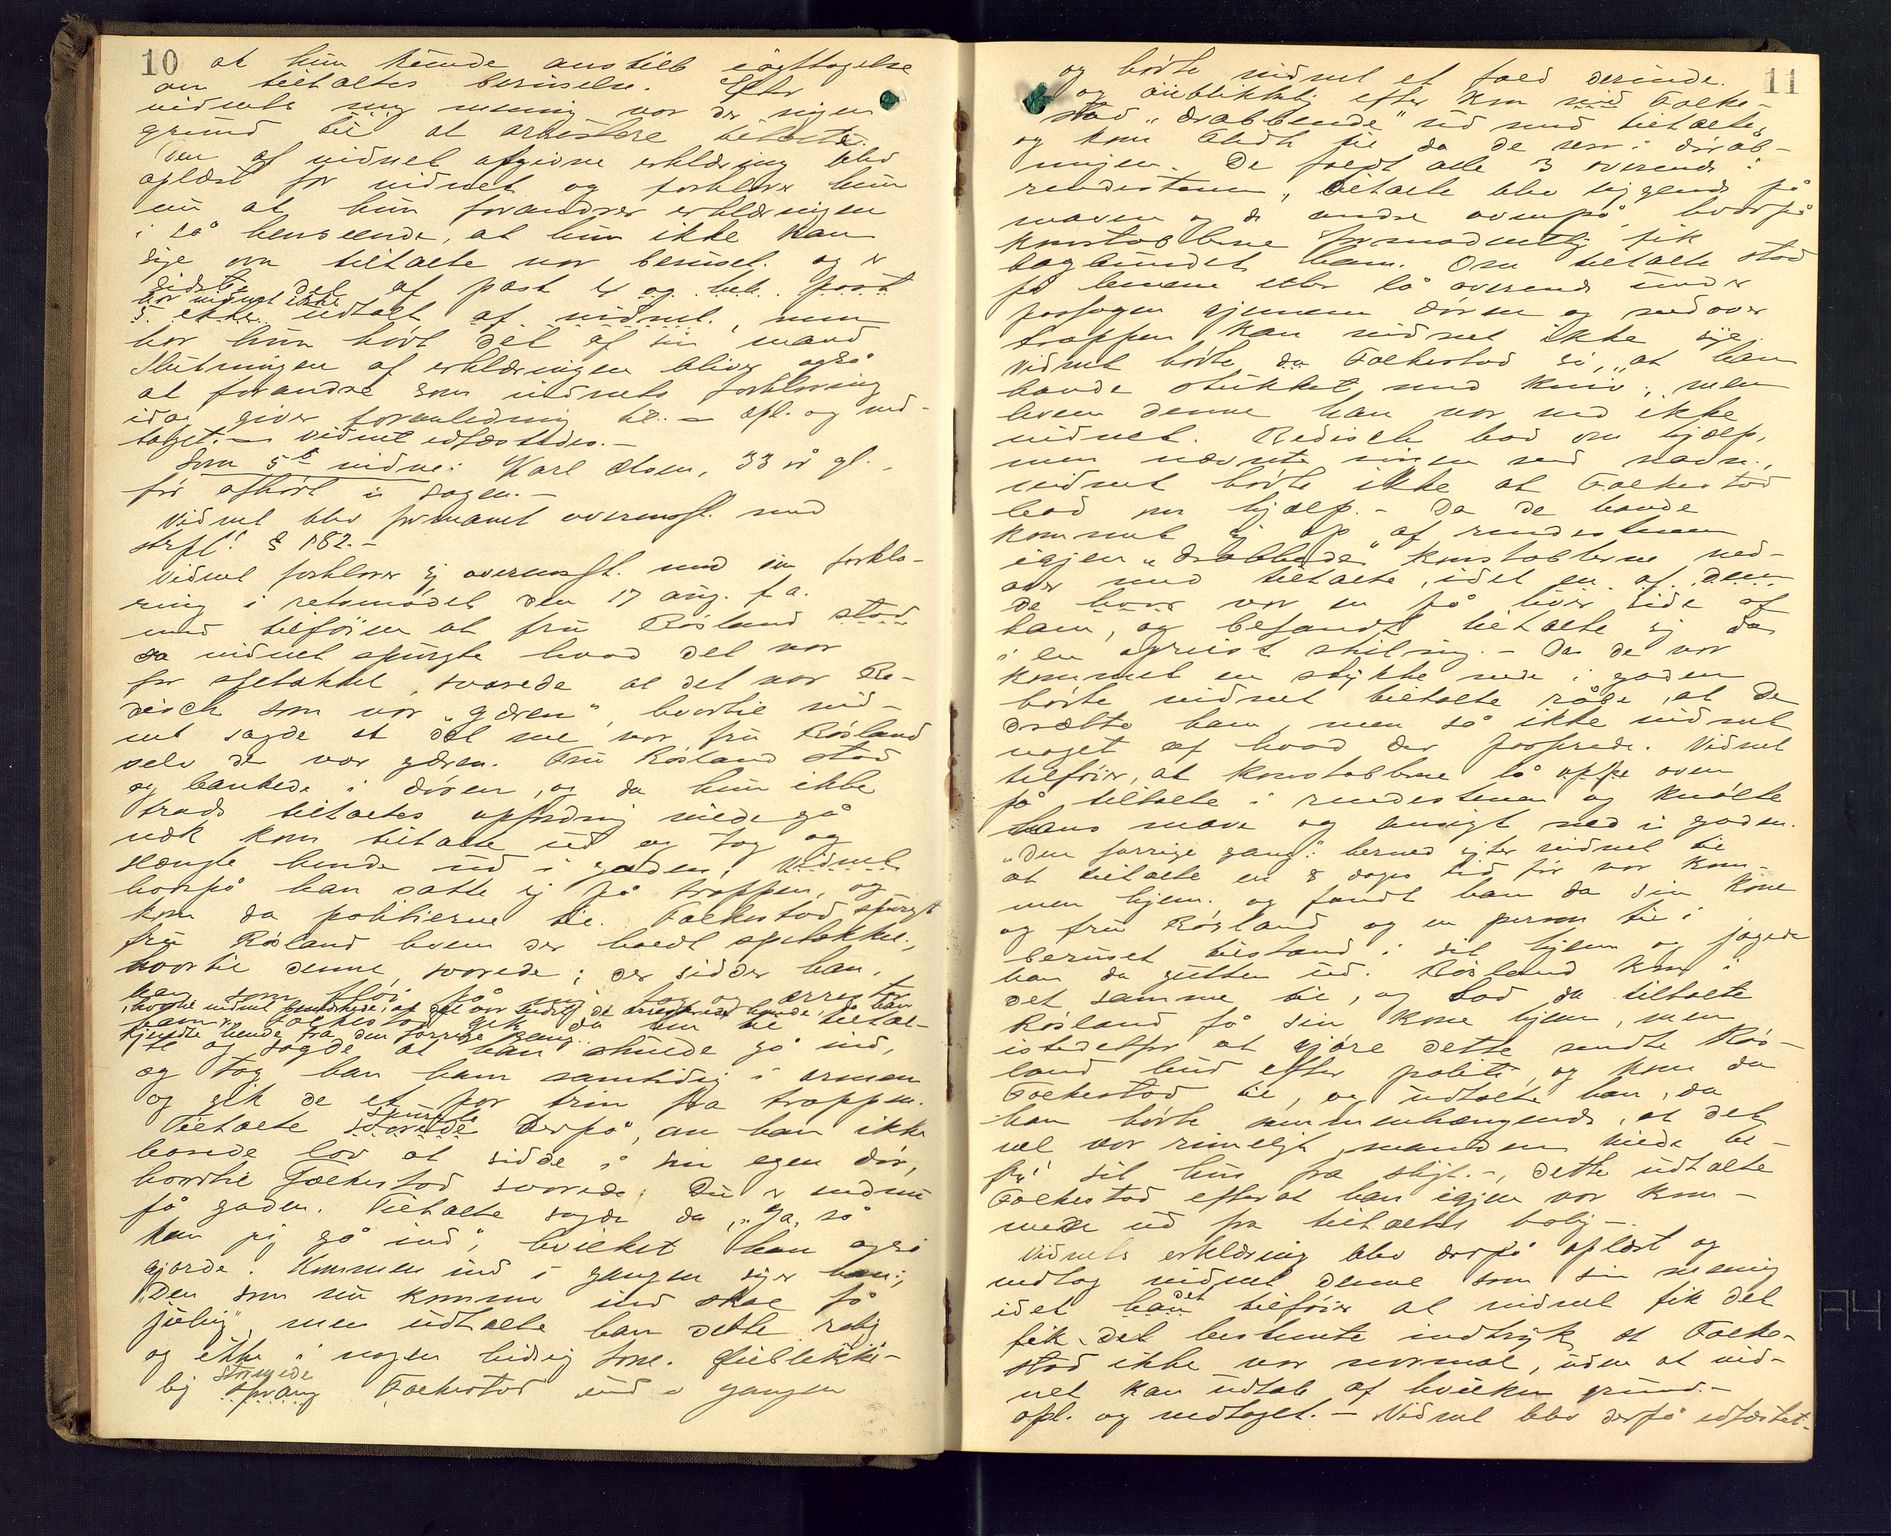 10
at hun kunde anstille iagttagelse
om tiltaltes beruselse. Efter
vidnets mening var der ingen
grund til at arrestere tiltalte.
Den af vidnet afgivne erklæring blev
oplæst for vidnet og forklarer hun
nu at hun forandrer erklæringen
i så henseende, at hun ikke kan
sige om tiltalte var beruset. og er
sidste del af post 4 og heb. post
har vidnet ikke
5 ikke udtalt af vidnet, men
har hun hørt det af sin mand
Slutningen af erklæringen bliver også
at forandre som vidnets forklaring
idag giver foranledning til. – opl. og ved-
taget. – Vidnet edfæstedes. –
Som 5te vidne: Karl Olsen, 33 år gl.,
før afhørt i sagen. –
Vidnet blev formanet overensst. med
strfl. § 182. –
Vidnet forklarer sig overensst. med sin forkla-
ring i retsmødet den 17 aug. f. a.
med tilføien at fru Røsland stod
da vidnet spurgte hvad det var
for spetakkel, svarede at det var Re-
disch som var "gæren", hvortil vid-
net sagde at det me var fru Røsland
selv der var gæren. Fru Røsland stod
og bankede i døren, og da hun ikke
trods tiltaltes opfordring vilde gå
væk kom tiltalte ud og tog og
slængte hende ud i gaden, vidnet
hvorpå han satte sig på trappen, og
kom da politierne til. Folkestad spurgte
fru Røsland hvem der holdt spetakkel,
hvortil denne svarede: der sidder han,
han som fløi på mig tag og arrester
hvortil vidnet bemærkede, at det var bedst de arresterede hende, da han
ham. Folkestad gik da hen til tiltal-
kjendte hende fra den forrige gang.
te og sagde at han skulde gå ind,
og tog han ham samtidig i armen
og gik de et par trin fra trappen.
spurgte
Tiltalte svarede derpå, om han ikke
havde lov at sidde i sin egen dør,
hvortil Folkestad svarede: Du er endnu
på gaden. Tiltalte sagde da, "Ja, så
kan jeg gå ind", hvilket han også
gjorde. Kommen ind i gangen siger han:,
"Den som nu kommer ind skal få
juling", men udtalte han dette rolig
og ikke i nogen hidsig tone. Øieblikke-
stormede
lig sprang Folkestad ind i gangen
11
og hørte vidnet et fald derinde.
og øieblikkelig efter kom ned Folke-
stad "drabbende" ud med tiltalte,
og kom Flidt til da de var i drab-
ningen. De faldt alle 3 overende i
rendestenen, tiltalte blev liggende på
maven og de andre ovenpå, hvorpå
konstablene formodentlig fik
bagbundet ham. Om tiltalte stod
på benene eller lå overende under
passagen gjennem døren og nedover
trappen kan vidnet ikke sige.
Vidnet hørte da Folkestad si, "at han
havde stukket med kniv", men
hvem denne han var ved ikke
vidnet. Redisch bad om hjælp,
men nævnte ingen ved navn,
vidnet hørte ikke at Folkestad
bad om hjælp. – Da de havde
kommet sig op af rendestenen
igjen "drabbede" konstablerne ned-
over med tiltalte, idet en af dem
de havde var en på hver side af
ham, og befandt tiltalte sig da
i en opreist stilling. – Da de var
kommet en stykke nede i gaden
hørte vidnet tiltalte råbe, at de
drælte ham, men så ikke vidnet
noget af hvad der passerede. Vidnet
tilføier, at konstablerne lå oppe oven
på tiltalte i rendestenen og knølte
hans mave og ansigt ned i gaden.
"Den forrige gang": hermed sigter vidnet til
at tiltalte en 8 dages tid før var kom-
men hjem og fandt han da sin kone
og fru Røsland og en person til i
beruset tilstand i sit hjem og jagede
han da gutten ud. Røsland kom i
det samme til, og bad da tiltalte
Røsland få sin kone hjem, men
istedetfor at gjøre dette sendte Røs-
land bud efter politi, og kom da
Folkestad til, og udtalte han, da
han hørte sammenhængende, at det
vel var rimeligt manden vilde be-
fri sit hus fra sligt. –, dette udtalte
Folkestad efterat han igjen var kom-
men ud fra tiltaltes bolig –.
Vidnets erklæring blev derpå oplæst og
vedtog vidnet denne som sin mening
det
idet han tilføier at vidnet fik det
fik det bestemte indtryk at Folke-
stad ikke var normal, uden at vid-
net kan udtale af hvilken grund. –
opl. og vedtaget. – Vidnet blev derpå edfæstet. –